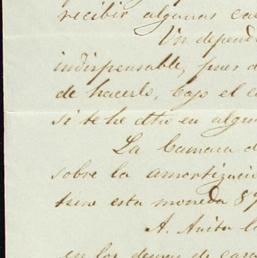 recibir algunas ca
Un depend
indispensable, pues a
de hacerlo, bajo el c
si te he dho en algu
La Camara d
sobre la amortizació
tiene esta moneda 87
A. Anita l
en los demas de casa